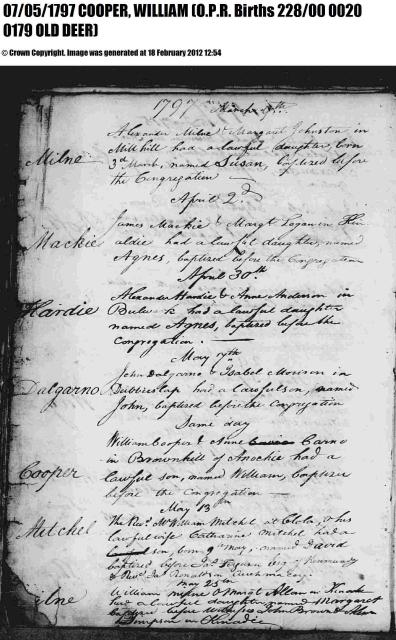 07/05/1797 COOPER, WILLIAM (O.P.R. Births 228/00 0020
0179 OLD DEER)
© Crown Copyright. Image was generated at 18 February 2012 12:54
1797 March
Alexander Milne & Margaret Johnston in
Milne
Millhill had a lawful daughter, born
3d March, named Susan, baptized before
the Congregation
April 2d
James Mackie & Margt Logan in
Mackie
had a lawful daughter, named
Agnes, baptized before the Congregation
April 30th
Alexander Hardie & Anne Anderson in
Hardie
had a lawful daughter
named Agnes, baptized before the
Congregation.
May 7th
John Dalgarno & Isabel in
Dalgarno
had a lawful son, named
John, baptized before the Congregation
Same day
William Cooper & Anne Carno
in Brownhill of Anochie had a
Cooper
lawful son, named William, baptized
before the Congregation
May 13th
Mitchel
The Revd Mr William Mitchel at Clola, & his
lawful wife Catharine Mitchel had a
son, born 9th May, named David
baptized before Jas Ferguson Esq of
& Revd
May 25th
William & Margt Allan in
had a lawful daughter named Margaret
John Brown &
Simpson in